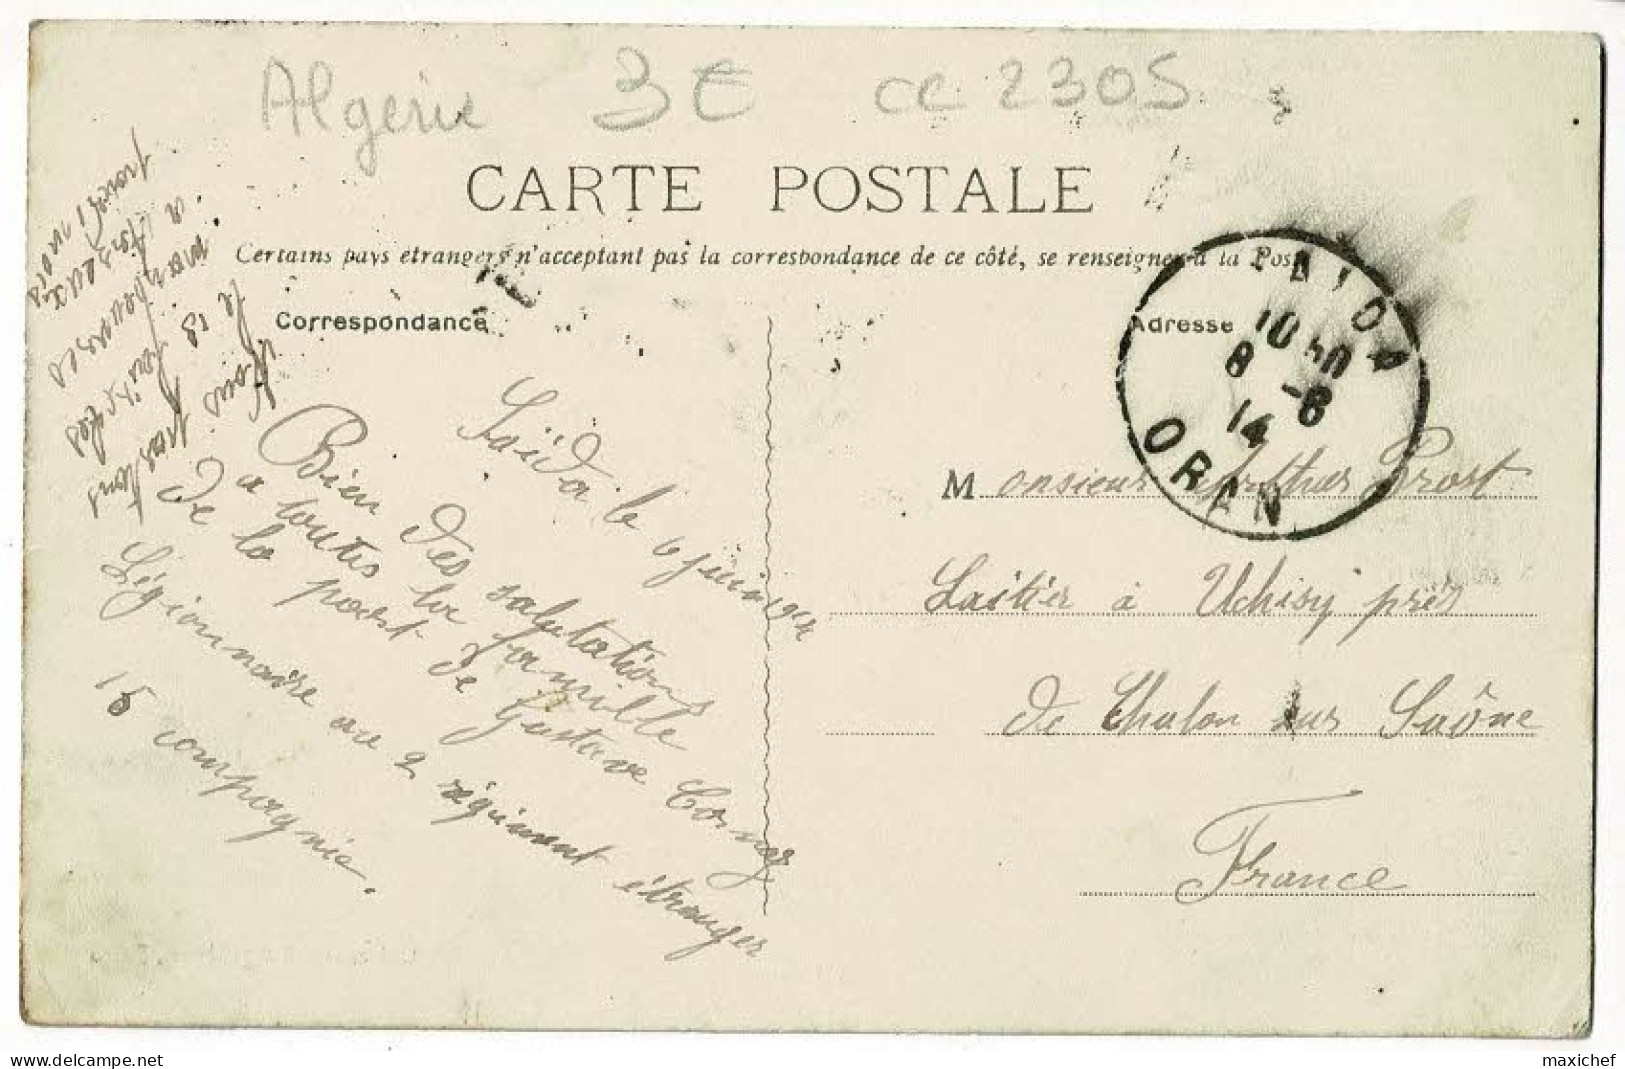 Algerie 3€ cc 2305
CARTE POSTALE
Certains pays étrangers n'acceptant pas la correspondance de ce côté, se renseigner à la Pos
Correspondance
Adresse
SAIDA
10 50
8 -6
14
ORAN
Saïda le 6 juin 1914
Bien des salutations
a toutes la famille
de la part de Gustave Cornez
Légionnaire au 2 régiment étranger
15 compagnie.
Nous partons
le 18
manœuvres
a
pour 1 mois
Monsieur Arthur Prost
Laitier à Uchisy près
de Chalon sur Saône
France
maxichef